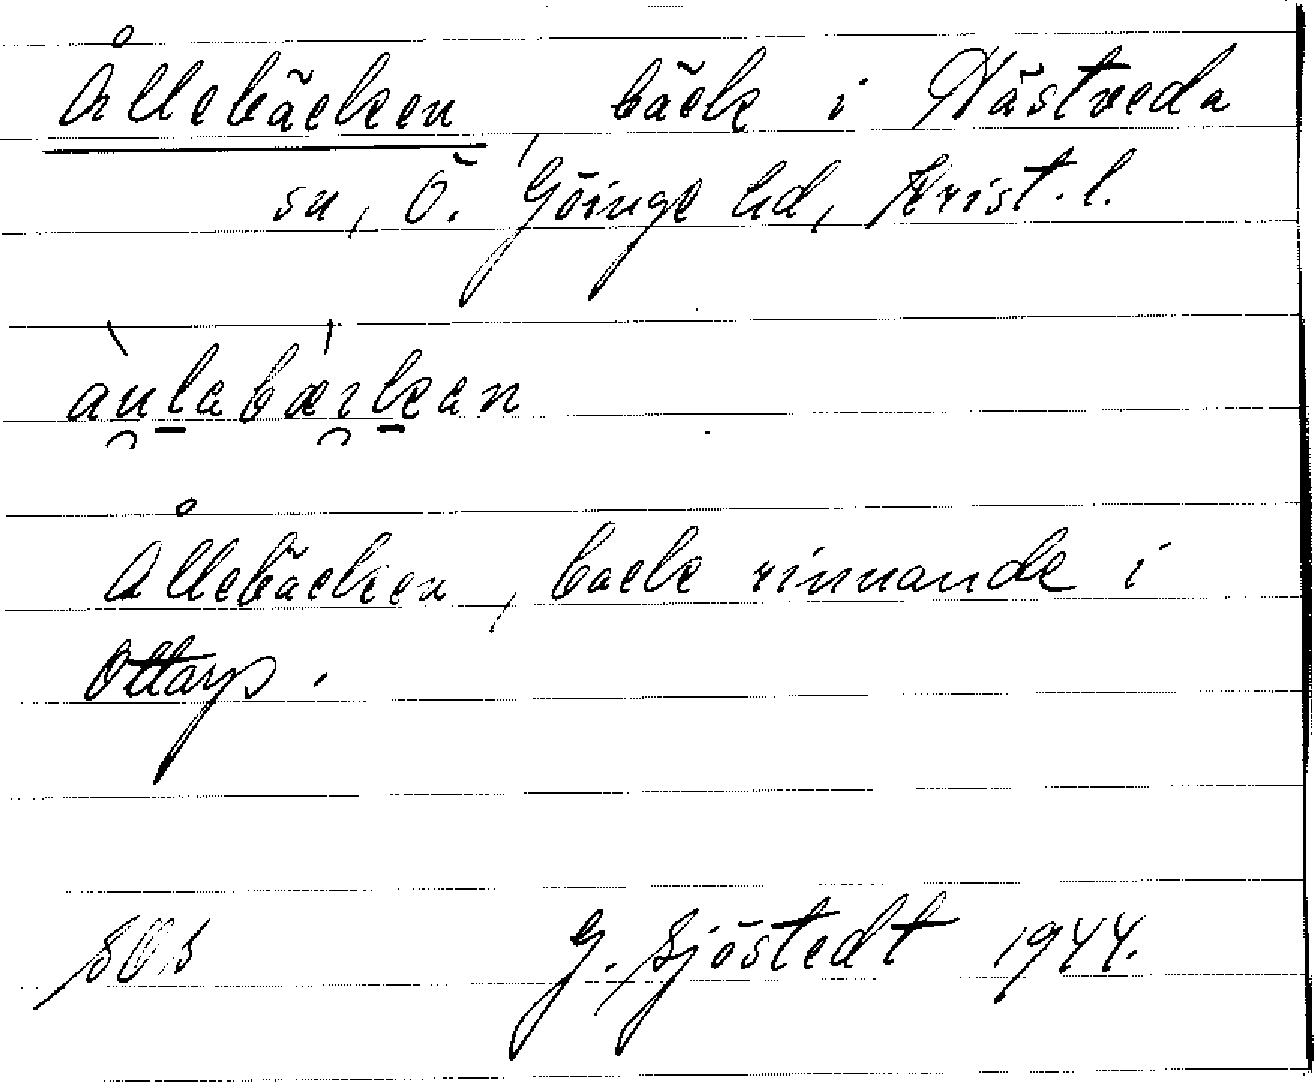 Ållebäcken, bäck i Hästveda
sn, Ö. Göinge hd, Krist. l.
Ållebäcken, bäck rinnande i
Ottarp.
G. Sjöstedt 1944.